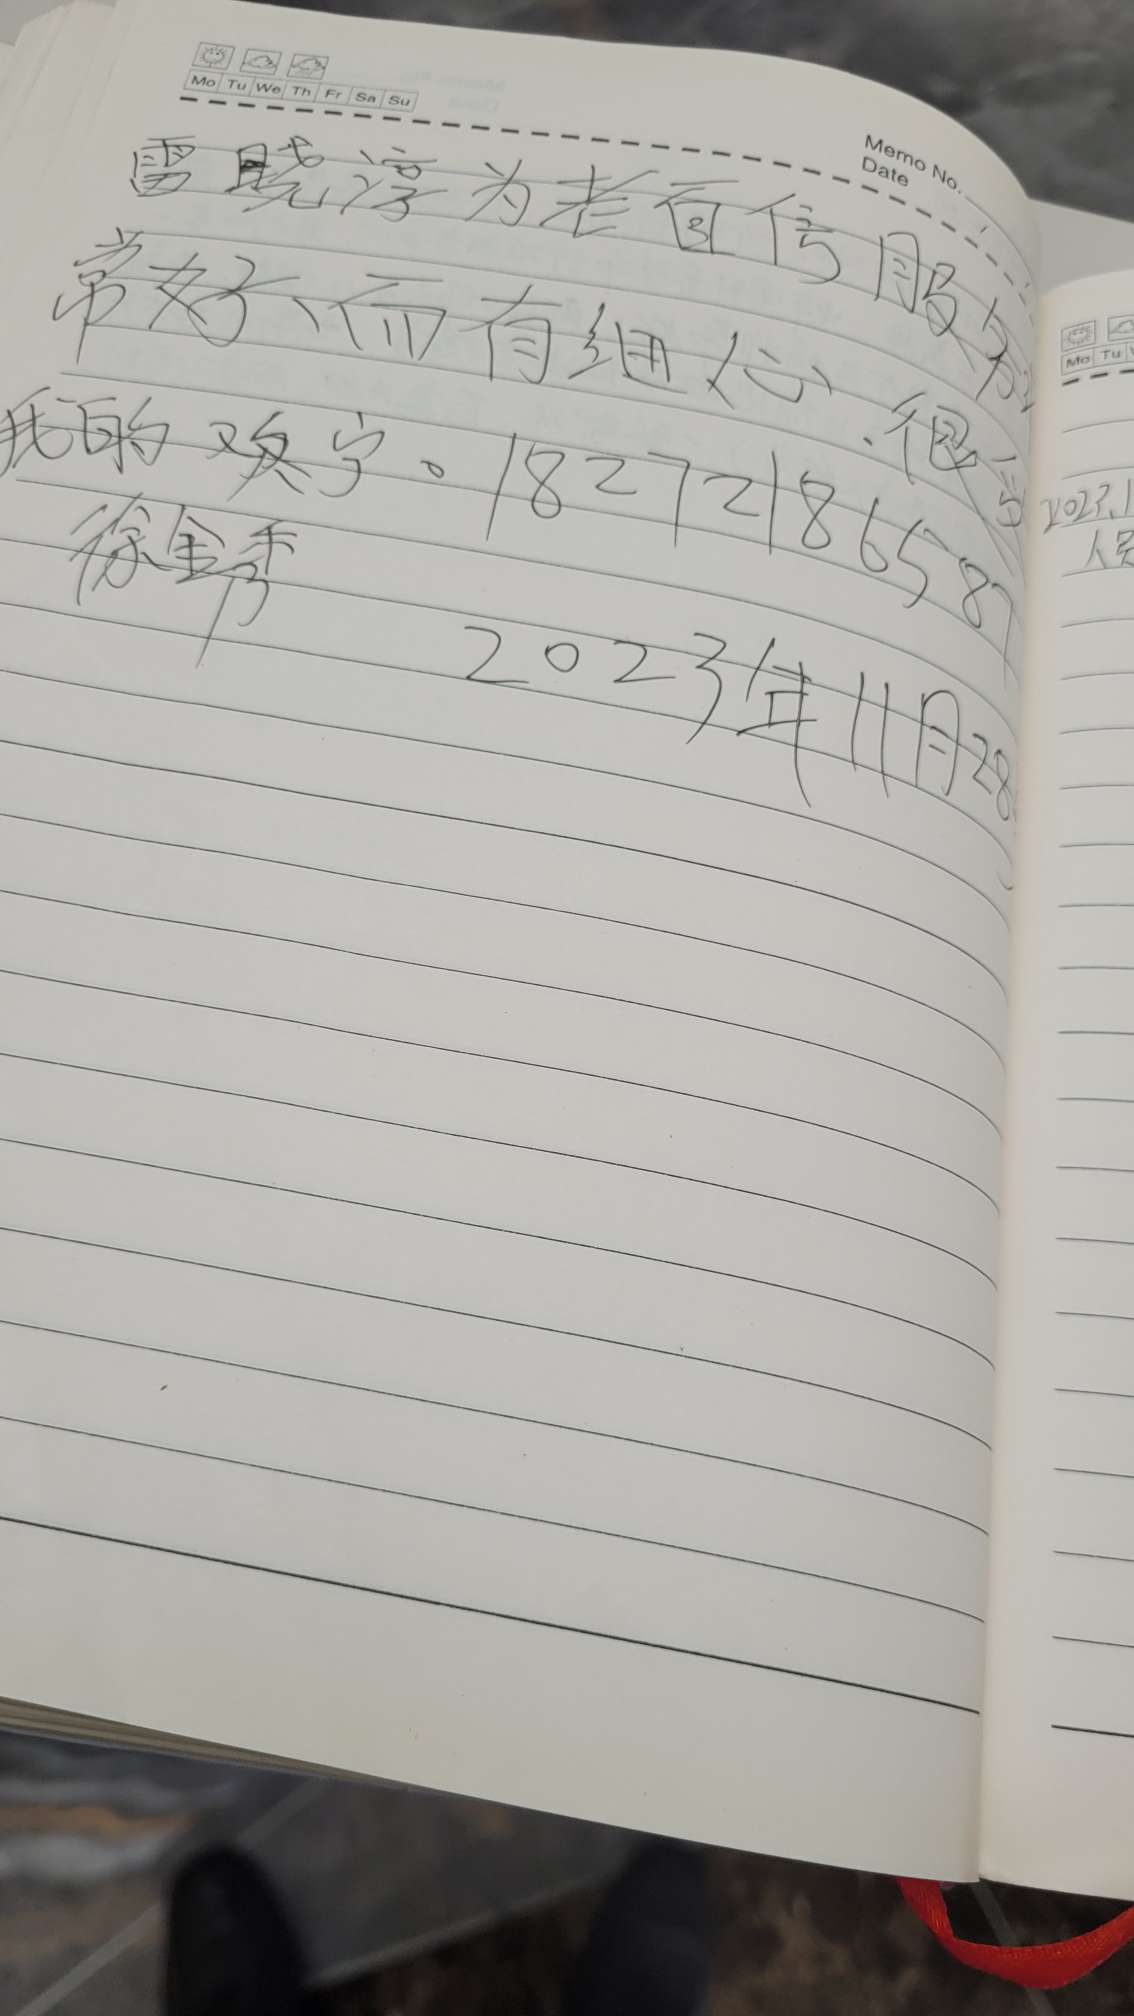 Mo Tu We Th Fr Sa Su
Memo No.
Date
雷晓淳为老百信服务
常好、而有细心、很
我的欢字。18272186587
徐金秀
2023年11月28
Mo Tu
2023.1
人员